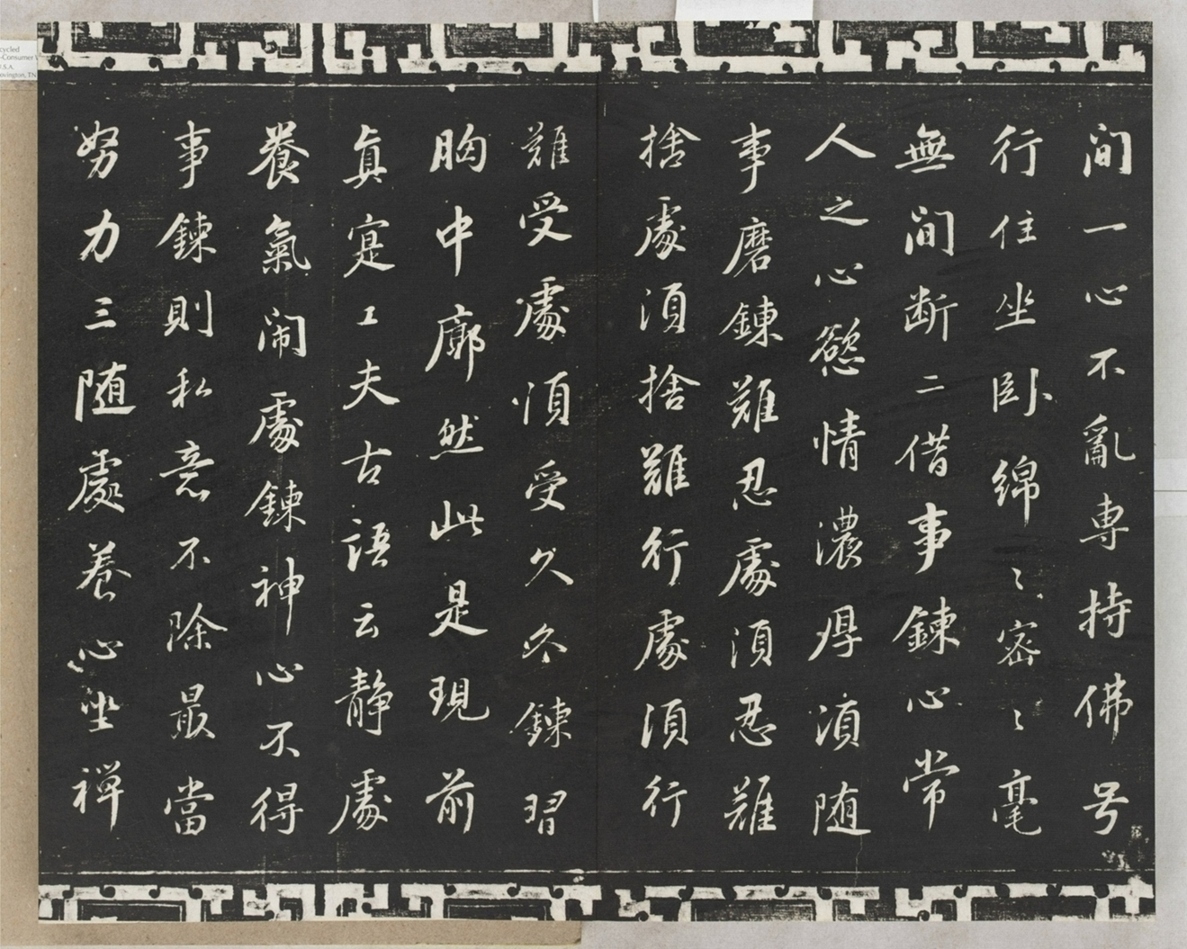 间一心不亂専持佛号
行住坐卧綿〻密〻毫
無间断二借事鍊心常
人之心慾情濃厚湏随
事磨鍊難忍處湏忍難
捨處湏捨難行處湏行
難受處湏受久久鍊習
胸中廓然此是現前
真寔工夫古語云静處
養氣闹處鍊神心不得
事鍊則私意不除最當
努力三随處养心坐禅